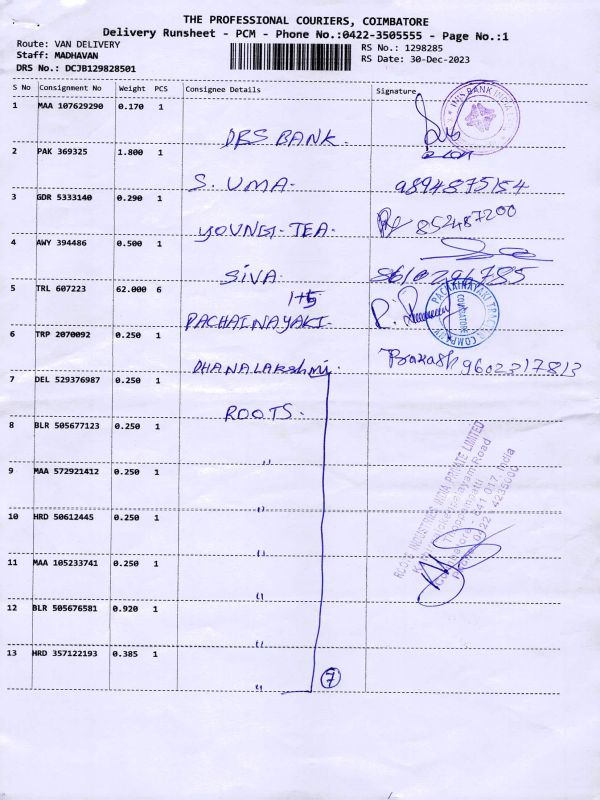 THE PROFESSIONAL COURIERS, COIMBATORE
Delivery Runsheet - PCM - Phone No.:0422-3505555 - Page No.:1
Route: VAN DELIVERY
RS No.: 1298285
Staff: MADHAVAN
RS Date: 30-Dec-2023
DRS No.: DCJB129828501
S No Consignment No Weight PCS Consignee Details Signature
1 MAA 107629290 0.170 1 DBS BANK.
2 PAK 369325 1.800 1 S. UMA. 9894875154
3 GDR 5333140 0.290 1 YOUNG-TEA.
4 AWY 394486 0.500 1 SIVA 8610296785
5 TRL 607223 62.000 6 1+5 PACHAINAYAKI.
6 TRP 2070092 0.250 1 DHANALAKshmi 9602317813
7 DEL 529376987 0.250 1 ROOTS.
8 BLR 505677123 0.250 1 "
9 MAA 572921412 0.250 1 "
10 HRD 50612445 0.250 1 "
11 MAA 105233741 0.250 1 "
12 BLR 505676581 0.920 1 "
13 HRD 357122193 0.385 1 " 7
INDUSTRIES INDIA PRIVATE LIMITED
Thoppampatti
Coimbatore - 641 017, India